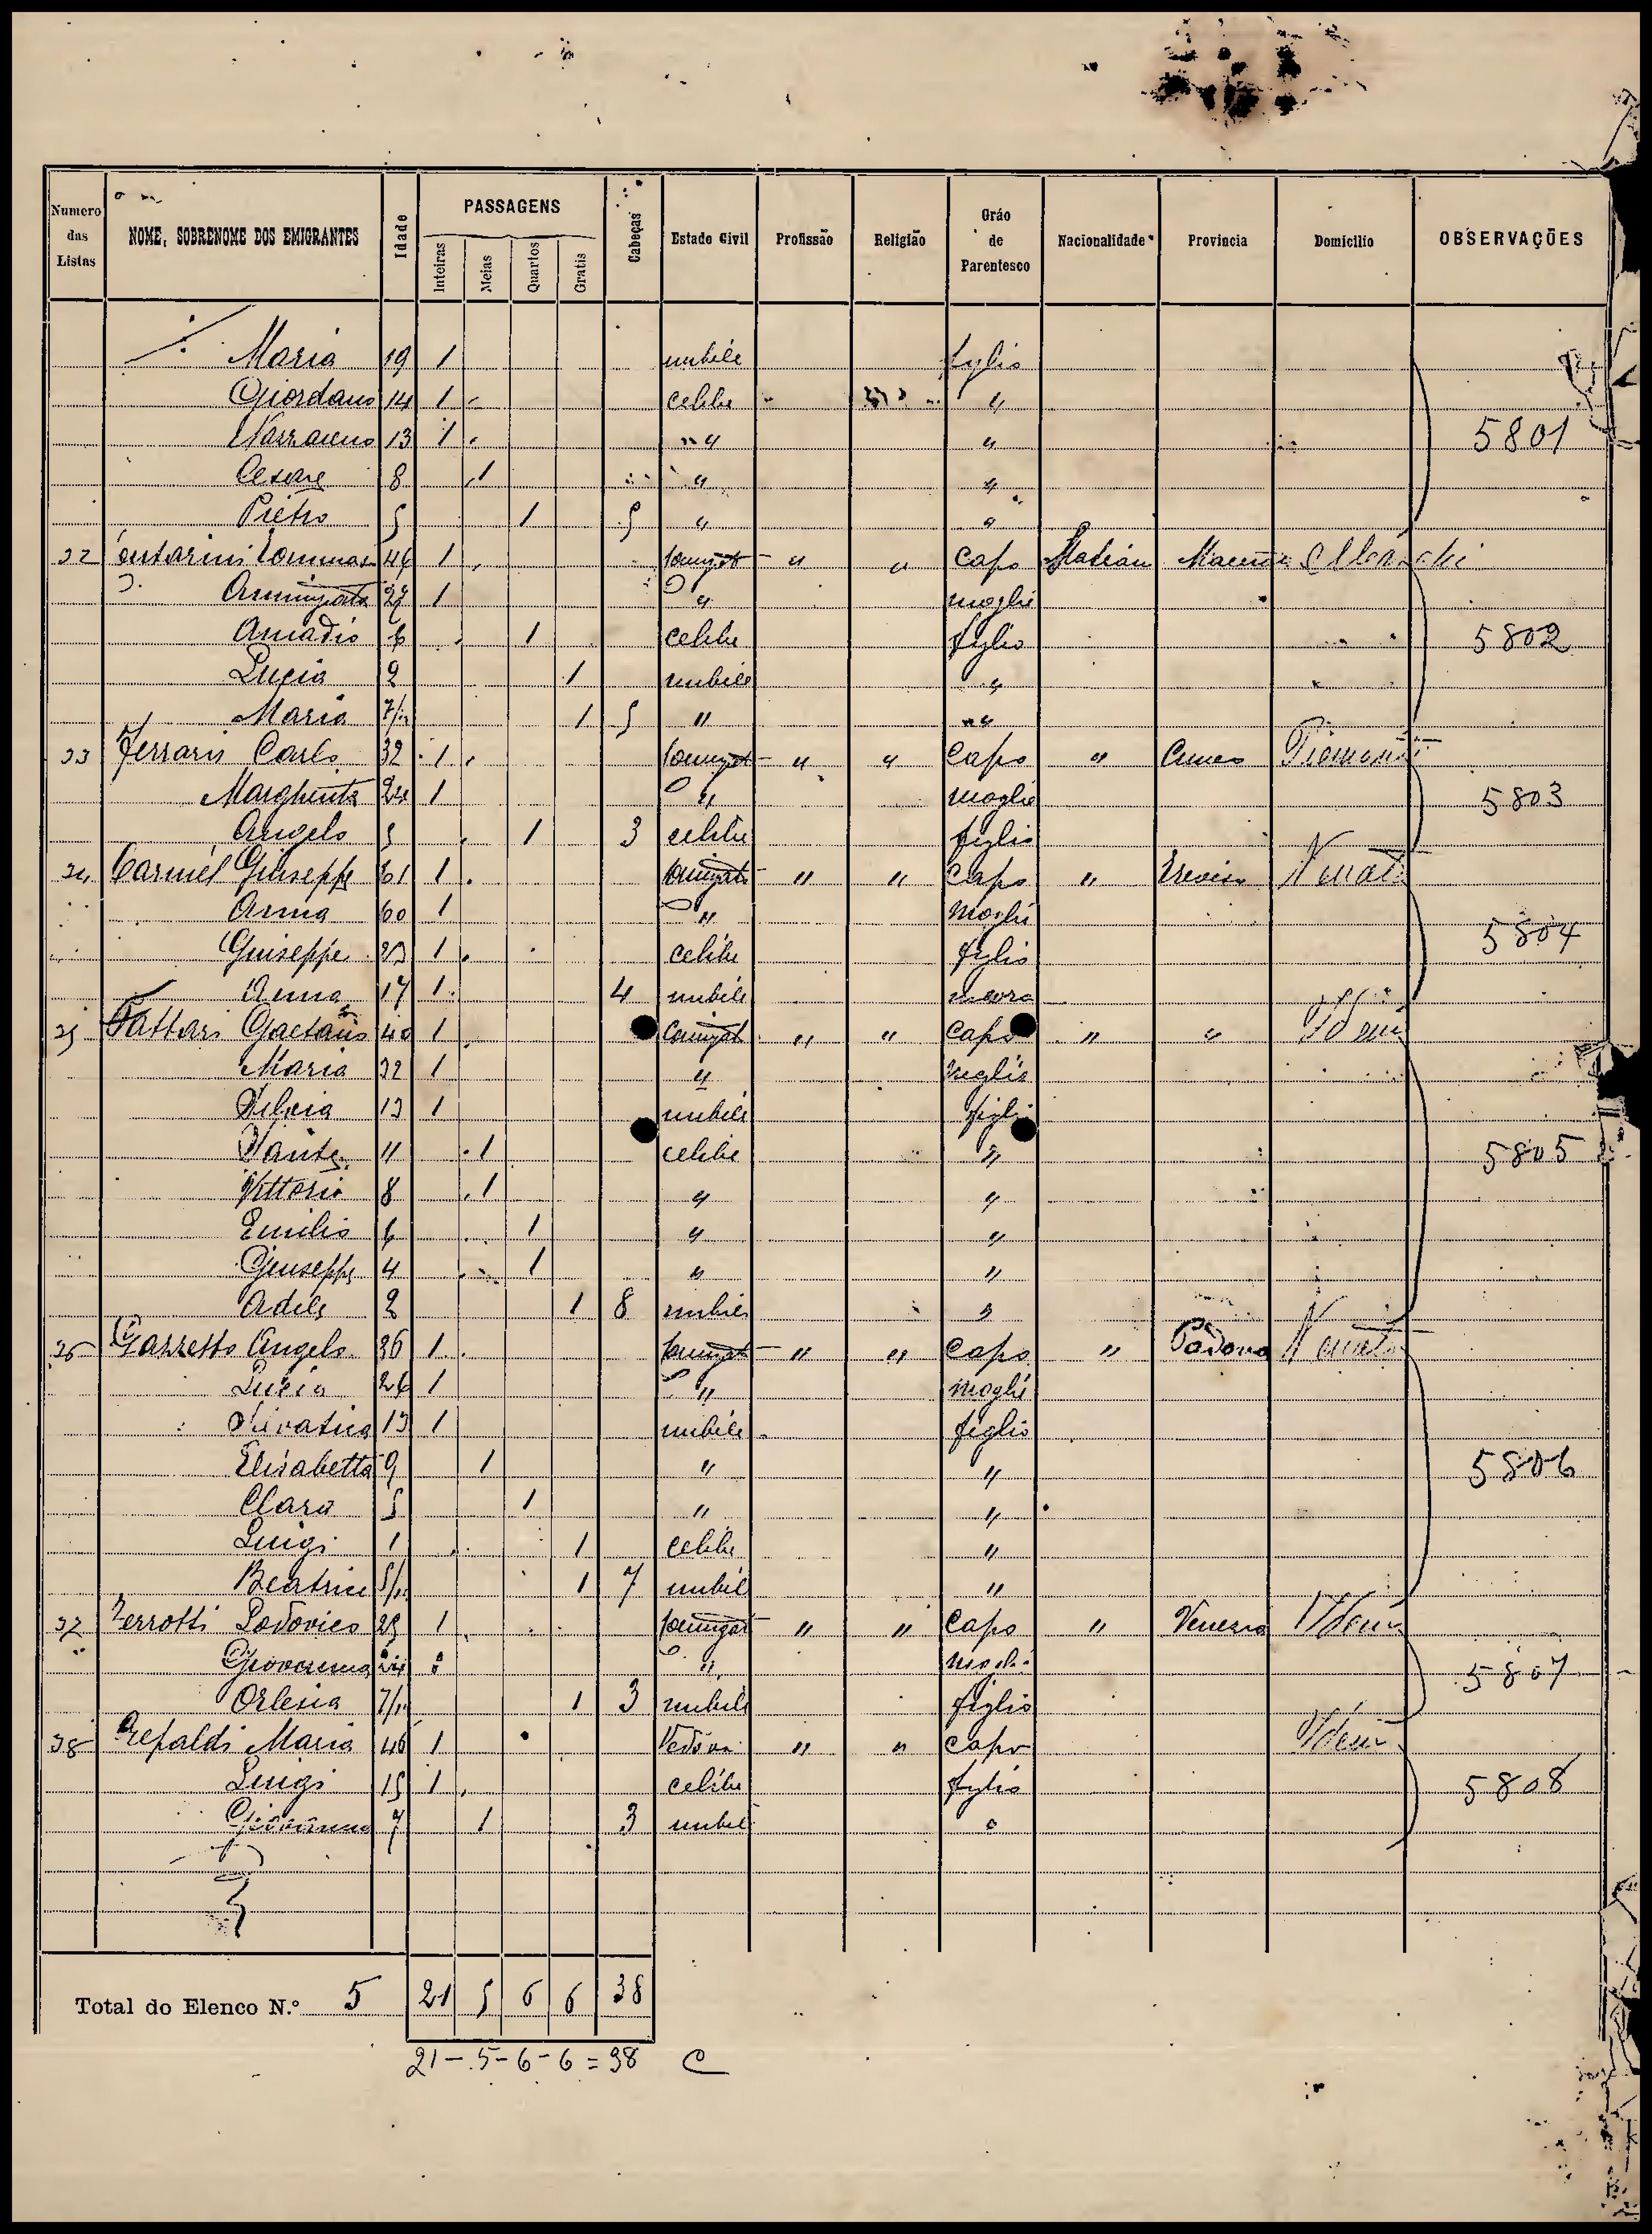 Numero das Listas NOME, SOBRENOME DOS EMIGRANTES Idade PASSAGENS Inteiras Meias Quartos Gratis Cabeças Estado Civil Profissão Religião Gráo de Parentesco Nacionalidade Provincia Domicilio OBSERVAÇÕES
Maria 19 1 nubile figlio
Giordano 14 1 celibe "
13 1 " " 5801
Cesare 8 1 " "
Pietro 5 1 5 " "
32 46 1 " " Capo
1 " moglie
Amadio 6 1 celibe figlio 5802
Lucia 2 1 nubile "
Maria 7/12 1 5 " "
33 Ferraris Carlo 32 1 " " Capo " Cuneo
Margherita 24 1 " moglie 5803
Angelo 5 1 3 celibe figlio
34 Carniel Giuseppe 61 1 " " Capo " Treviso
Anna 60 1 " moglie
Giuseppe 23 1 celibe figlio 5804
Anna 17 1 4 nubile nuora
35 Gaetano 40 1 " " Capo " " Idem
Maria 32 1 " moglie
Silvia 13 1 nubile figlio
11 1 celibe " 5805
Vittorio 8 1 " "
Emilio 6 1 " "
Giuseppe 4 1 " "
Adile 2 1 8 nubile "
36 Gazzetto Angelo 36 1 " " Capo " Padova
Lucia 26 1 " moglie
13 1 nubile figlio
Elisabetta 9 1 " " 5806
Clara 5 1 " "
Luigi 1 1 celibe "
Beatrice 5/12 1 7 nubile "
37 Lodovico 1 " " Capo " Venezia Idem
Giovanna 24 1 " moglie 5807
Orlesia 7/12 1 3 nubile figlio
38 Maria 46 1 Vedova " " Capo Idem
Luigi 15 1 celibe figlio 5808
Giovanna 7 1 3 nubile "
Total do Elenco N.º 5 21 5 6 6 38
21 - 5 - 6 - 6 = 38 C